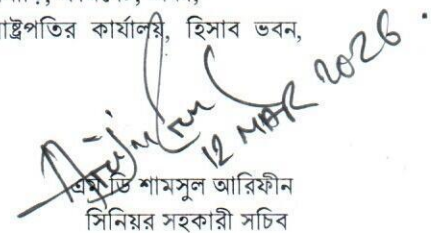 রাষ্ট্রপতির কার্যালয়, হিসাব ভবন,
12 MAR 2026.
এম ডি শামসুল আরিফীন
সিনিয়র সহকারী সচিব